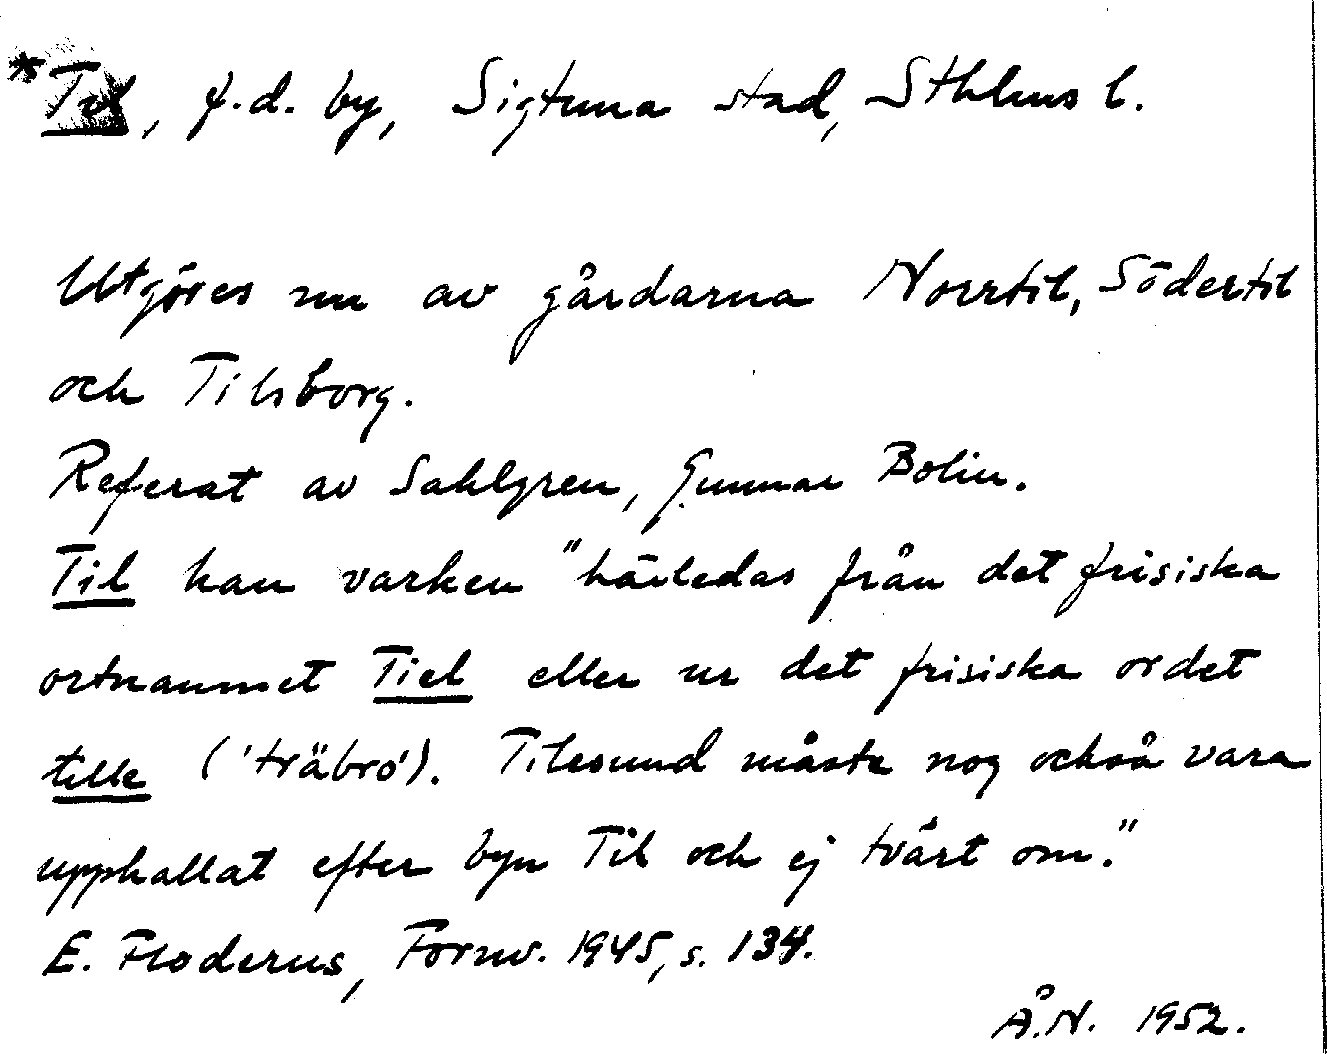 *Til, f.d. by, Sigtuna stad, Sthlms l.
Utgöres nu av gårdarna Norrtil, Södertil
och Tilsborg.
Referat av Sahlgren, Gunnar Bolin.
Til kan varken "härledas från det frisiska
ortnamnet Tiel eller ur det frisiska ordet
tille ('träbro'). Tilesund måste nog också vara
uppkallat efter byn Til och ej tvärt om."
E. Floderus, Fornv. 1945, s. 134.
Å.N. 1952.